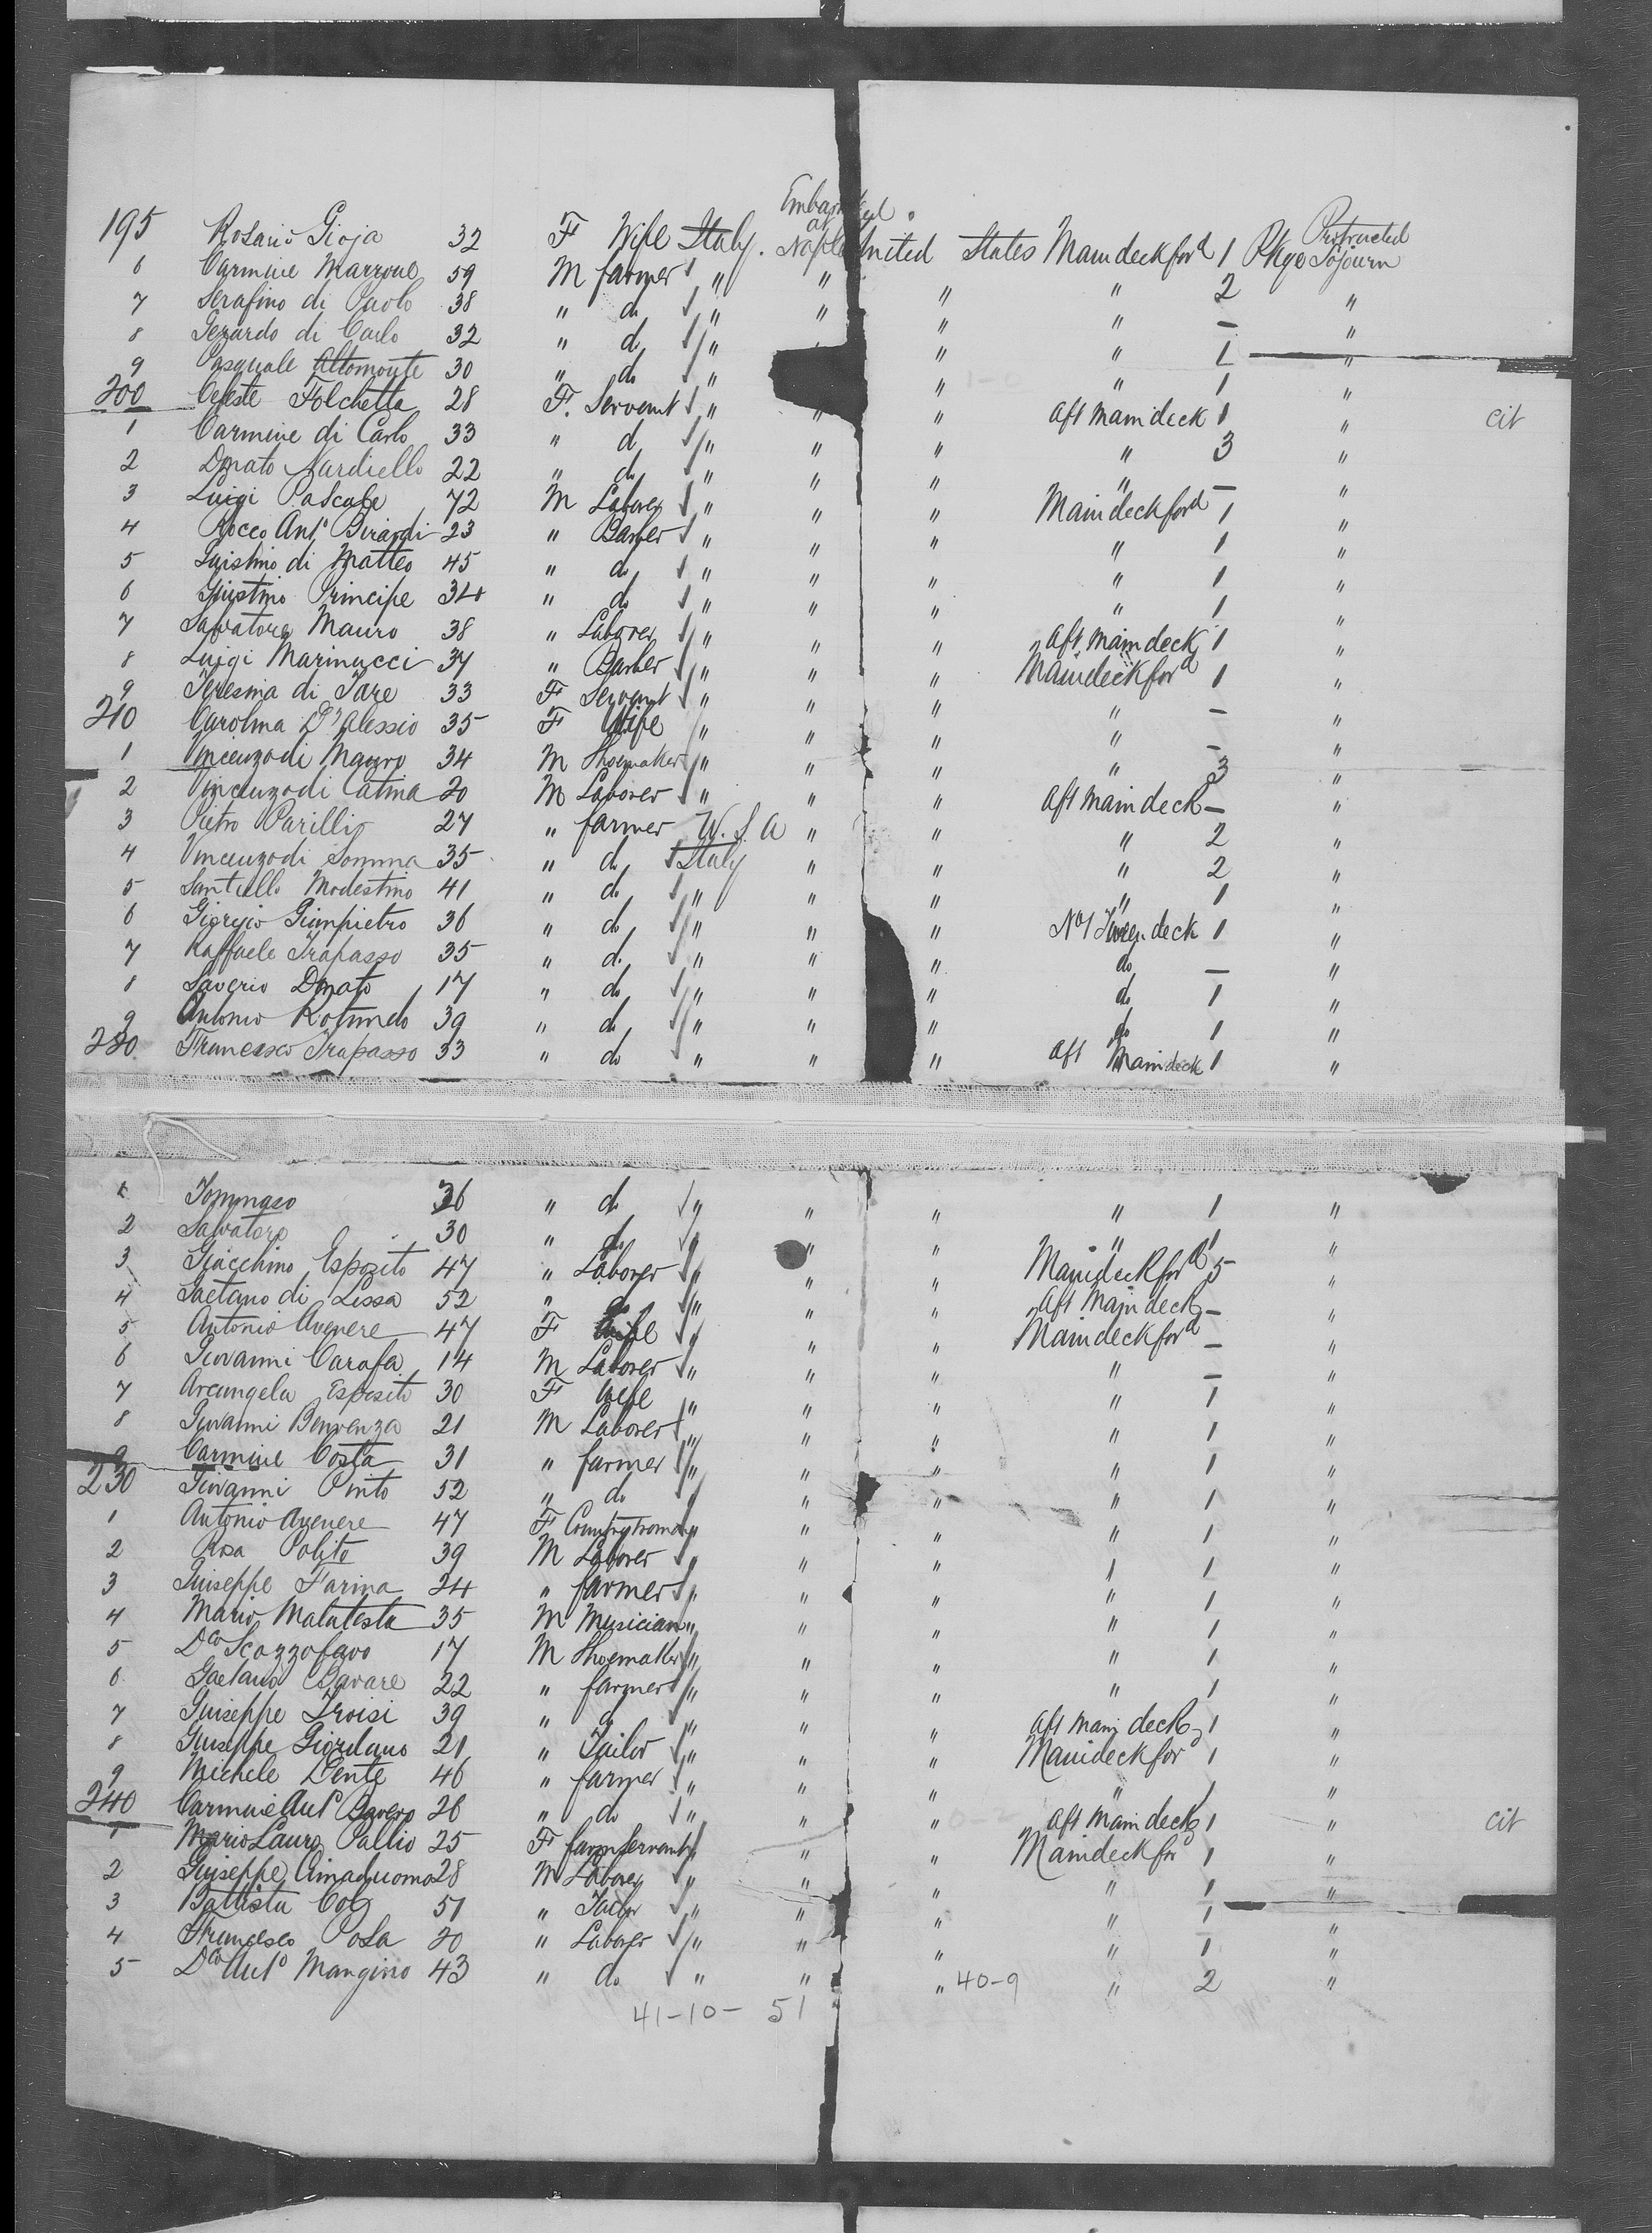 Embarked
at
195 Rosario Gioja 32 F Wife Italy. Naples United States Maindeck ford 1 Pkge Protracted Sojourn
6 Carmine Marrone 59 M farmer " " " " 2 "
7 Serafino di Paolo 38 " do " " " " — "
8 Gerardo di Carlo 32 " do " " " 1 "
9 Pasquale Altomonte 30 " do " " " 1 "
200 Celeste Folchetta 28 F. Servant " " " aft maindeck 1 " cit
1 Carmine di Carlo 33 " do " " " " 3 "
2 Donato Nardiello 22 " do " " " " — "
3 Luigi Pascale 72 M Laborer " " " Maindeck ford 1 "
4 Rocco Anto 23 " Barber " " " " 1 "
5 Guistino di Matteo 45 " do " " " " 1 "
6 Guistino Principe 34 " do " " " " 1 "
7 Salvatore Mauro 38 " Laborer " " " aft maindeck 1 "
8 Luigi Marinucci 34 " Barber " " " Maindeck ford 1 "
9 Teresina di Iare 33 F Servant " " " " — "
210 Carolina D'Alessio 35 F Wife " " " " — "
1 Vincenzo di Mauro 34 M Shoemaker " " " " 3 "
2 Vincenzo di Catina 20 M Laborer " " " aft maindeck — "
3 Pietro Parillio 27 " farmer U.S.A " " " 2 "
4 Vincenzo di Somma 35 " do Italy " " " 2 "
5 Santiello Modestino 41 " do " " " " 1 "
6 Giorgio Giampietro 36 " do " " " No 1 Tween deck 1 "
7 Raffaele Trapasso 35 " do " " " do — "
8 Saverio Donato 17 " do " " " do 1 "
9 Antonio Rotundo 39 " do " " " do 1 "
220 Francesco Trapasso 33 " do " " " aft Maindeck 1 "
1 Tommaso 36 " do " " " " 1 "
2 Salvatore 30 " do " " " " 1 "
3 Giacchino Esposito 47 " Laborer " " " Maindeck ford 5 "
4 Gaetano di Lissa 52 " do " " " aft Maindeck — "
5 Antonio Avenere 47 F Wife " " " Maindeck ford — "
6 Giovanni Carafa 14 M Laborer " " " " — "
7 Arcangela Esposito 30 F Wife " " " " 1 "
8 Giovanni Benvenza 21 M Laborer " " " " 1 "
9 Carmine Costa 31 " farmer " " " " 1 "
230 Giovanni Pinto 52 " do " " " " 1 "
1 Antonio Avenere 47 F Countrywoman " " " " 1 "
2 Rosa Polito 39 M Laborer " " " " 1 "
3 Guiseppe Farina 24 " farmer " " " " 1 "
4 Mario Malatesta 35 M Musician " " " " 1 "
5 Dco Scozzofavo 17 M Shoemaker " " " " 1 "
6 Gaetano Gavare 22 " farmer " " " " 1 "
7 Guiseppe Troisi 39 " do " " " aft main deck 1 "
8 Guiseppe Giordano 21 " Tailor " " " Maindeck ford 1 "
9 Michele Dente 46 " farmer " " " " 1 "
240 Carmine Anto 26 " do " " " aft Main deck 1 " cit
1 Mario Laura Pallio 25 F farmservant " " " Maindeck ford 1 "
2 Guiseppe 28 M Laborer " " " " 1 "
3 Battista Col 51 " Tailor " " " " 1 "
4 Francesco Posa 20 " Laborer " " " " 1 "
5 Dco Anto Mangino 43 " do " " " 40-9 " 2 "
41-10- 51